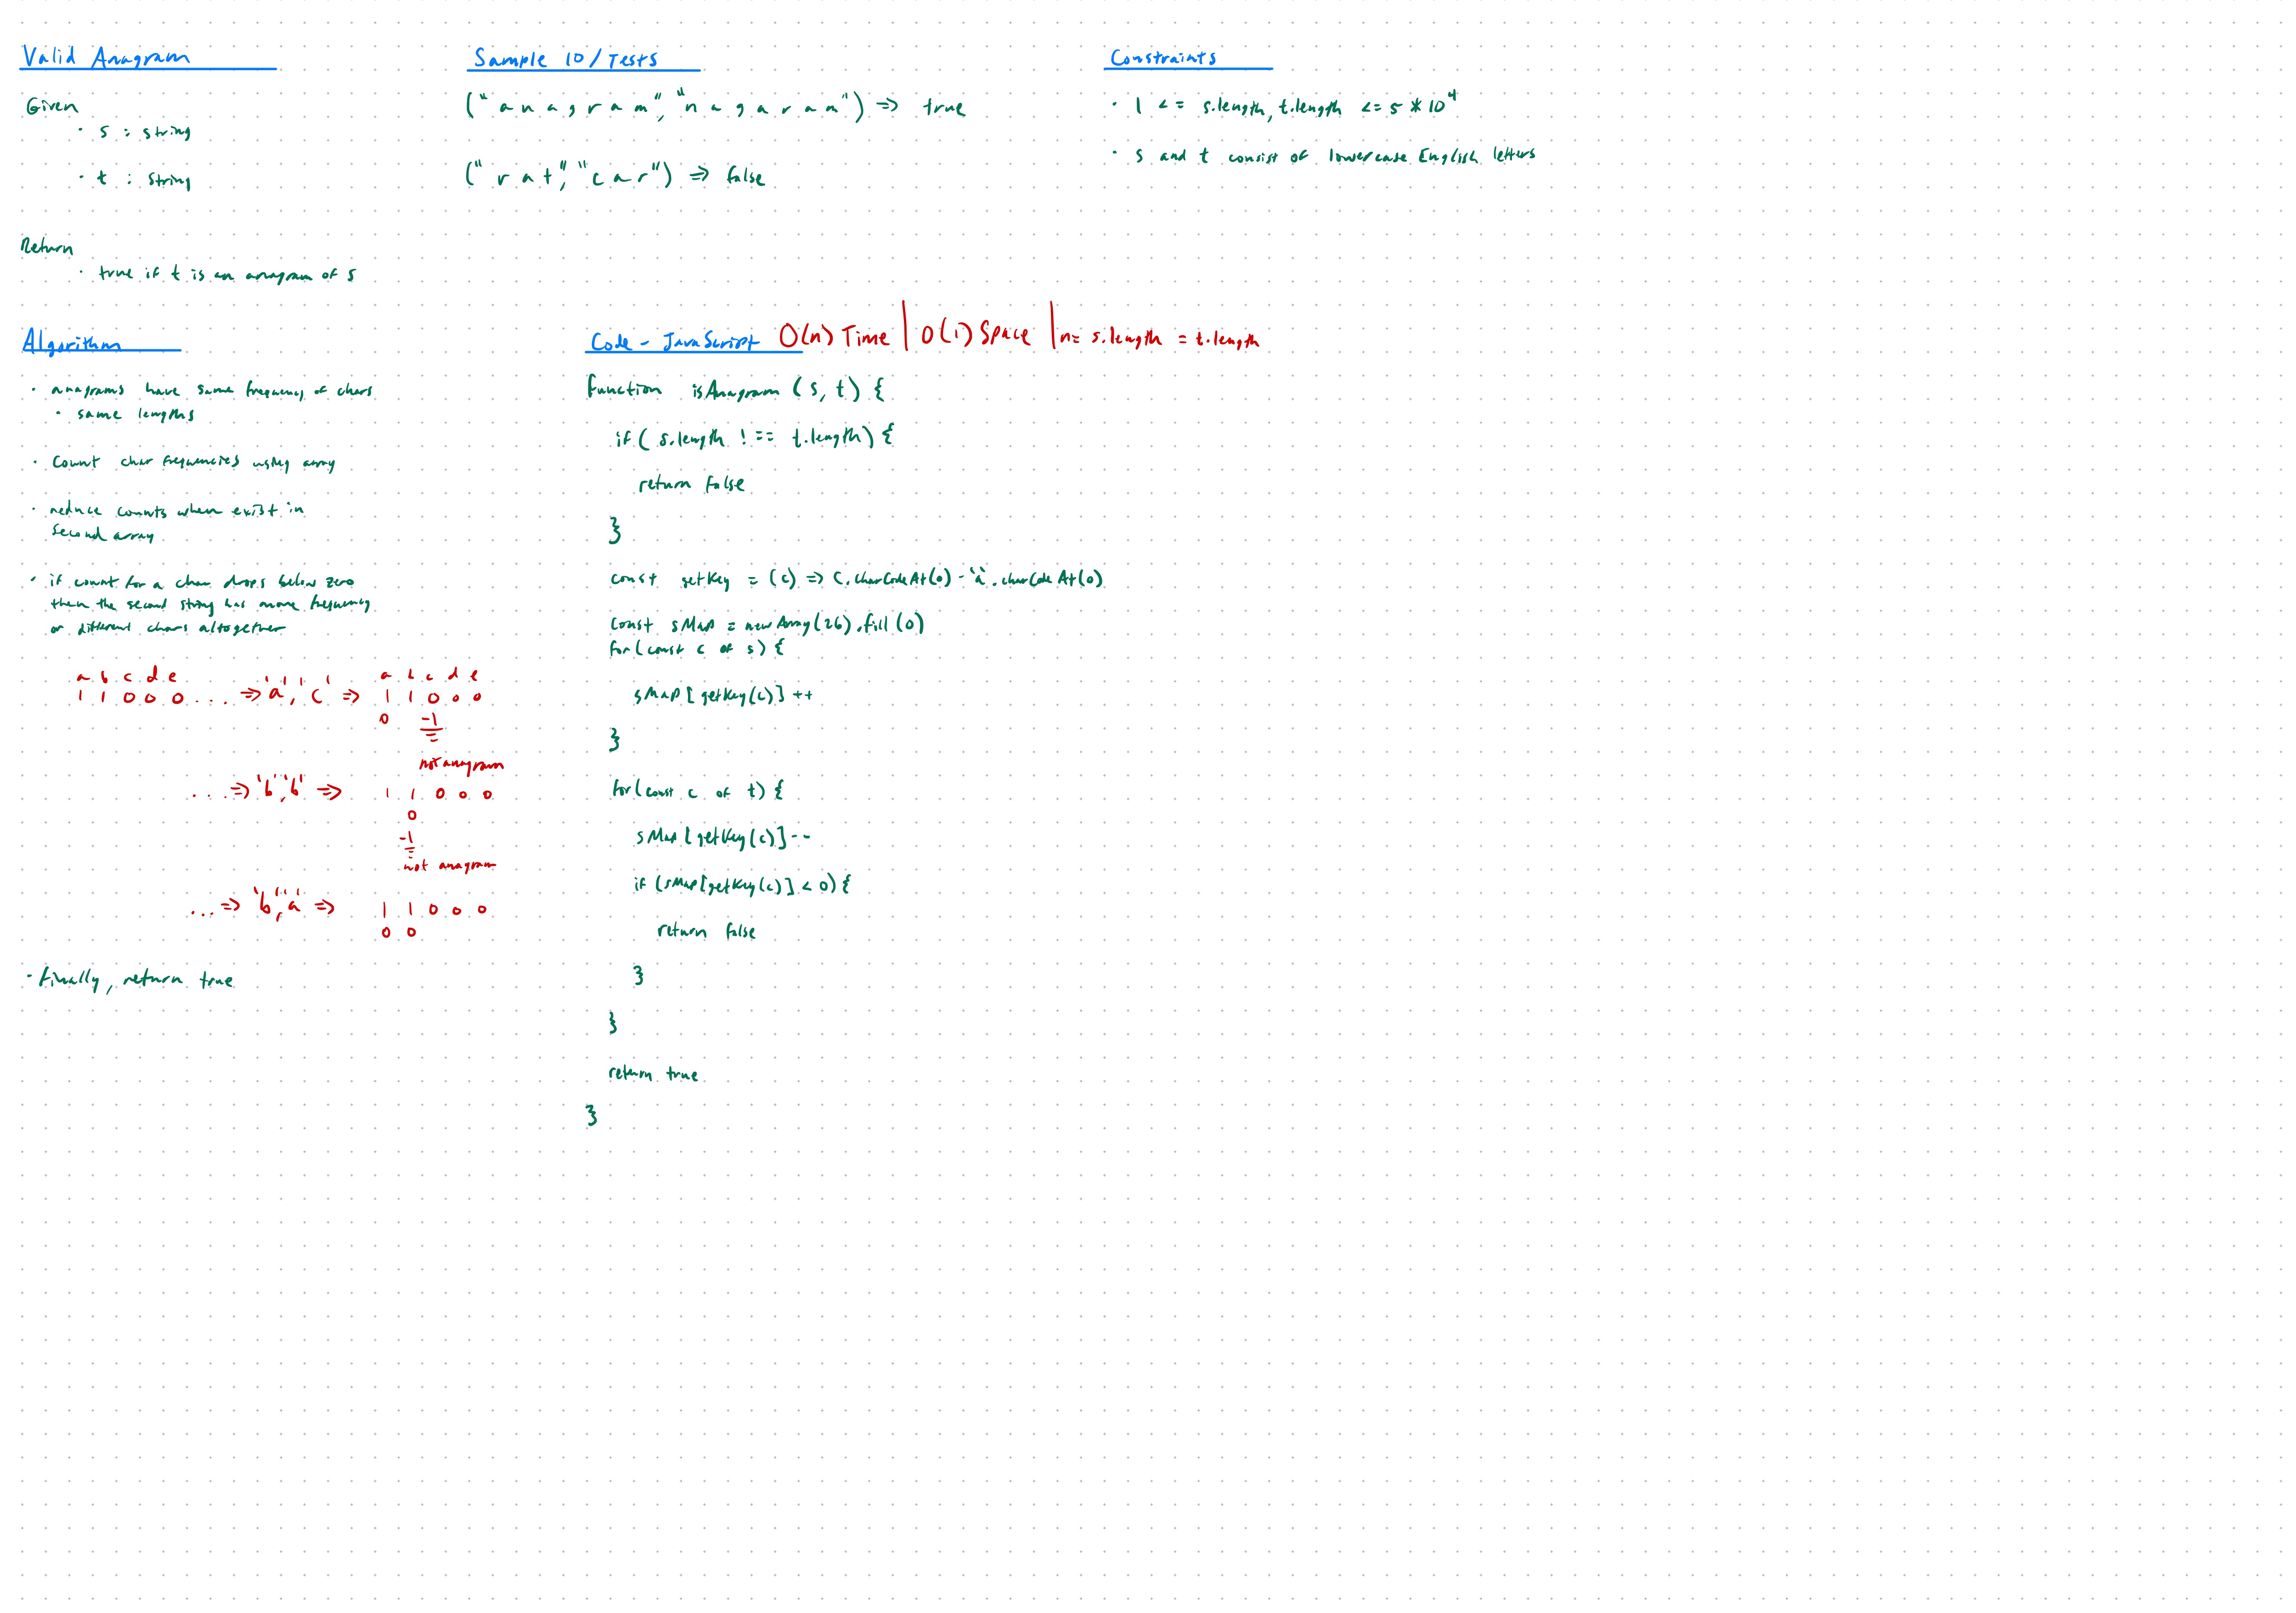 Valid Anagram
Given
· s : string
· t : string
Return
· true if t is an anagram of s
Sample IO/Tests
("anagram", "nagaram") => true
("rat", "car") => false
Constraints
· 1 <= s.length, t.length <= 5 * 10^4
· s and t consist of lowercase English letters
Algorithm
· anagrams have same frequency of chars
· same lengths
· Count char frequencies using array
· reduce counts when exist in
second array
· if count for a char drops below zero
then the second string has more frequency
or different chars altogether
a b c d e a b c d e
1 1 0 0 0 ... => 'a', 'c' => 1 1 0 0 0
0 -1
not anagram
... => 'b', 'b' => 1 1 0 0 0
0
-1
not anagram
... => 'b', 'a' => 1 1 0 0 0
0 0
· Finally, return true
Code - JavaScript O(n) Time | O(1) Space | n = s.length = t.length
function isAnagram (s, t) {
if ( s.length !== t.length) {
return false
}
const getKey = (c) => c.charCodeAt(0) - 'a'.charCodeAt(0)
const sMap = new Array(26).fill(0)
for (const c of s) {
sMap[getKey(c)] ++
}
for (const c of t) {
sMap[getKey(c)] --
if (sMap[getKey(c)] < 0) {
return false
}
}
return true
}